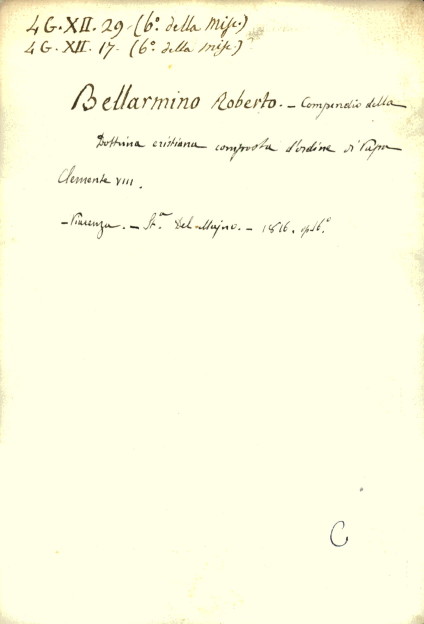 4 G. XII. 29. (6º. della Misc.)
4 G. XII. 17. (6º. della Misc.)
Bellarmino Roberto. - Compendio della
Dottrina cristiana composta d'ordine di Papa
Clemente VIII.
- Piacenza. - St.ª Del Majno. - 1816. 16º.
C